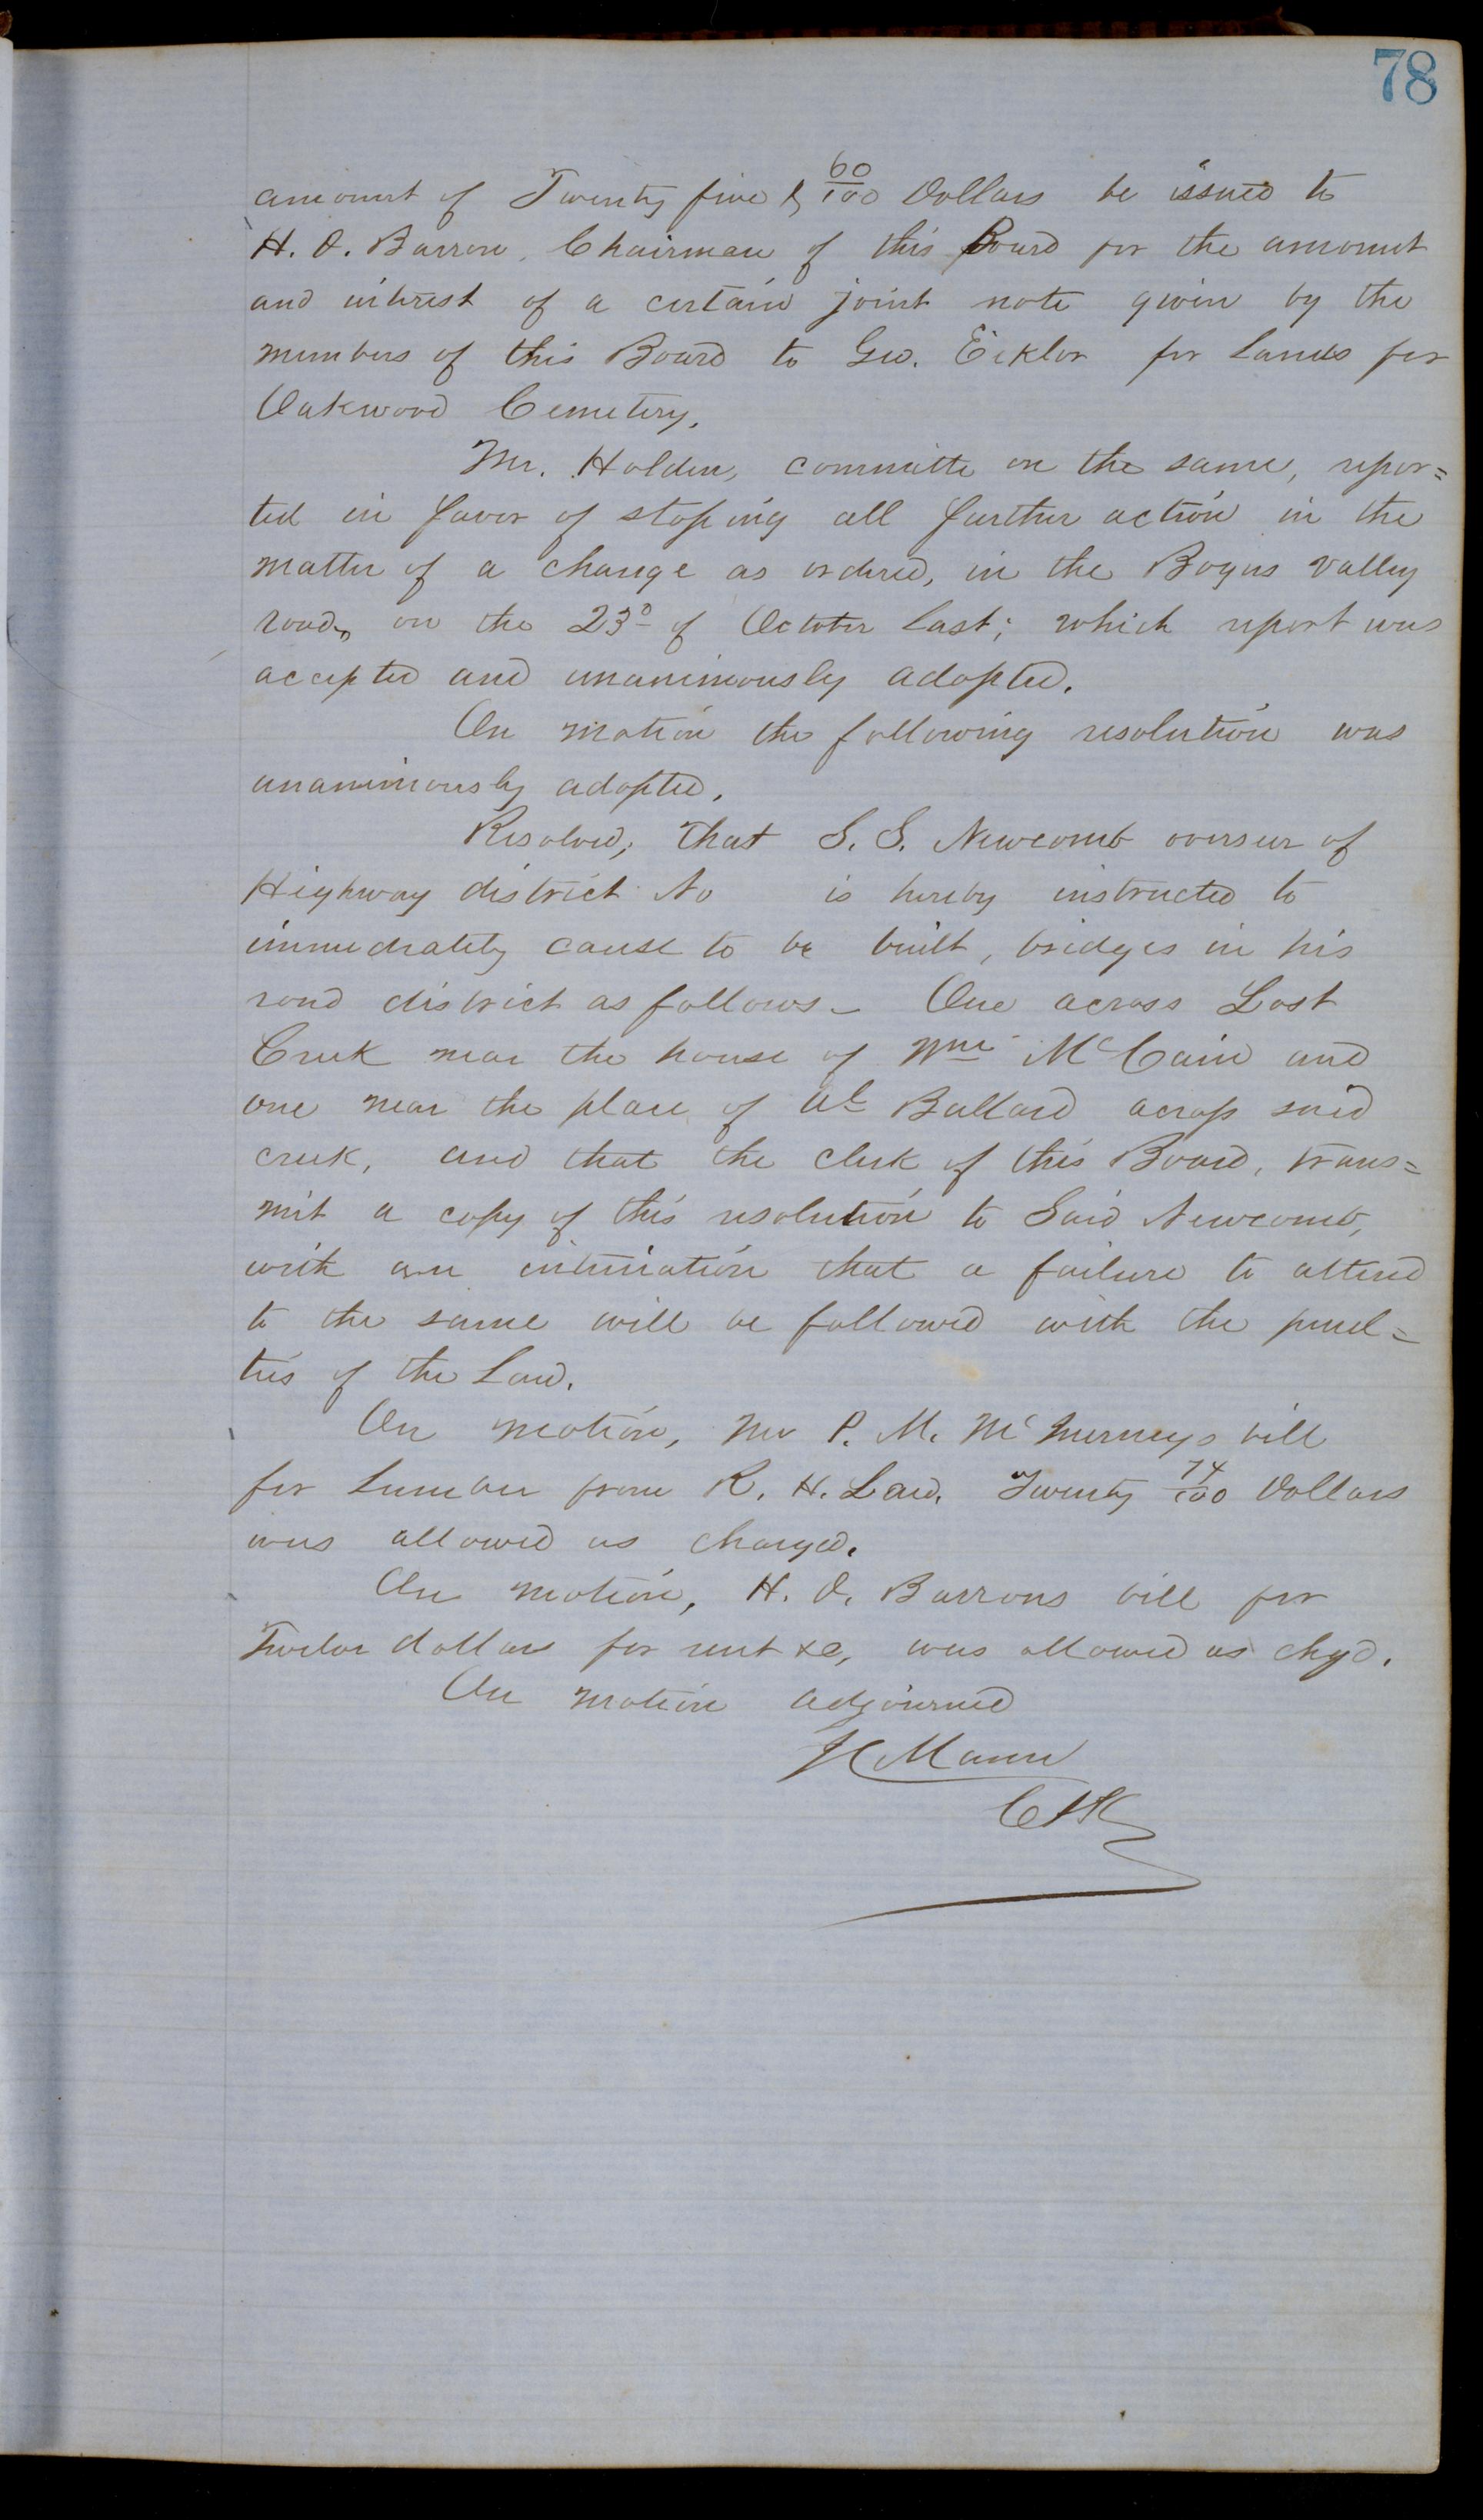 78
amount of Twenty five & 60/100 Dollars be issued to
H. O. Barron, Chairman of this Board for the amount
and interest of a certain joint note given by the
members of this Board to Geo. Eckler for Lands for
Oakwood Cemetery.
Mr. Holden, committe on the same, repor=
ted in favor of stoping all further action in the
matter of a change as ordered, in the Bogus valley
road, on the 23d of October last; which report was
accepted and unanimously adopted.
On motion the following resolution was
unanimously adopted.
Resolved, That S. S. Newcomb overseer of
Highway district No is hereby instructed to
immediately cause to be built, bridges in his
road district as follows - One across Lost
Creek near the house of Wm McCain and
one near the place of Ballard across said
creek, and that the clerk of this Board, trans=
mit a copy of this resolution to Said Newcomb,
with an intimation that a failure to attend
to the same will be followed with the penel=
ties of the Law.
On motion, Mr P. M. McInerneys bill
for Lumber from R. H. Law. Twenty 74/100 Dollars
was allowed as charged.
On motion, H. O. Barrons bill for
Twelve dollars for rent &c, was allowed as chgd.
On motion adjourned
H Mann
Clk